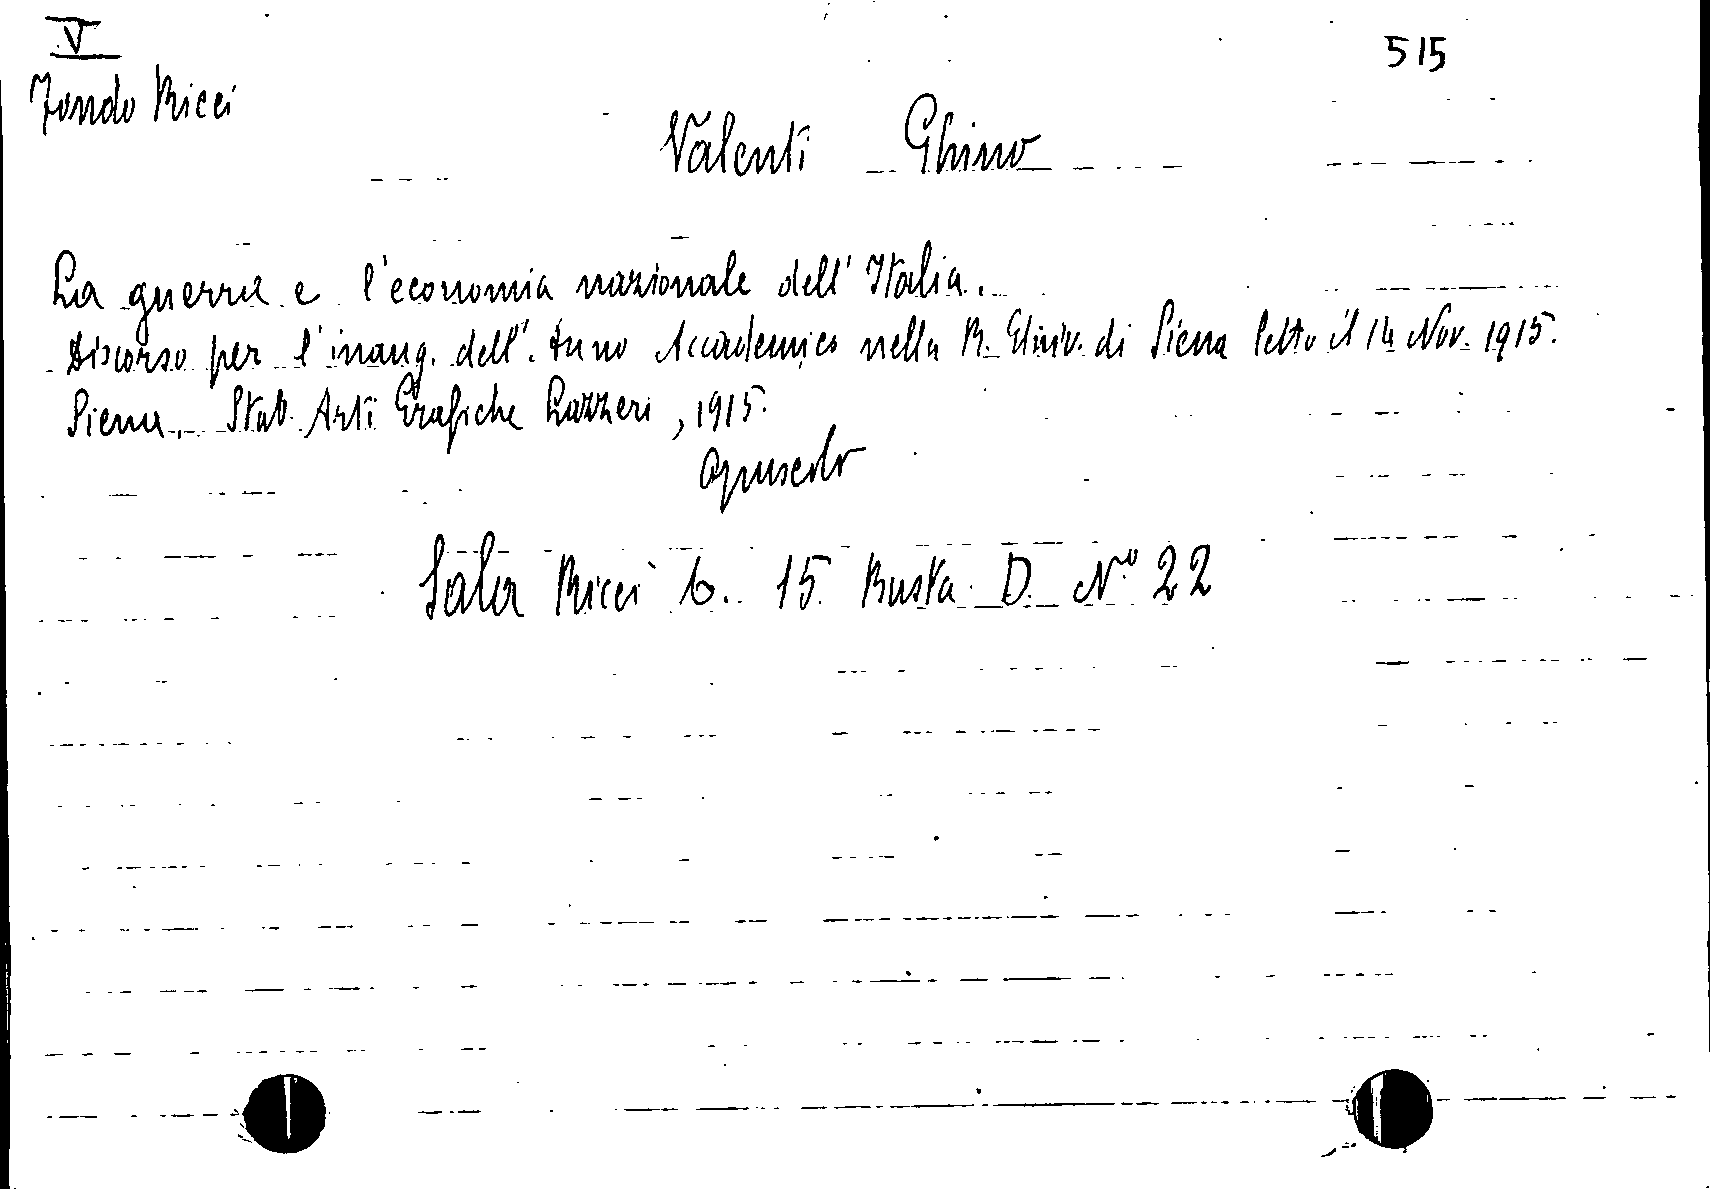 V
515
Fondo Ricci
Valenti Ghino
La guerra e l'economia nazionale dell'Italia.
Discorso per l'inaug. dell'. Anno Accademico nella R. Univ. di Siena letto il 14 Nov. 1915.
Siena, Stab. Arti Grafiche Lazzeri, 1915.
Opuscolo
Sala Ricci 6. 15 Busta D. N.° 22